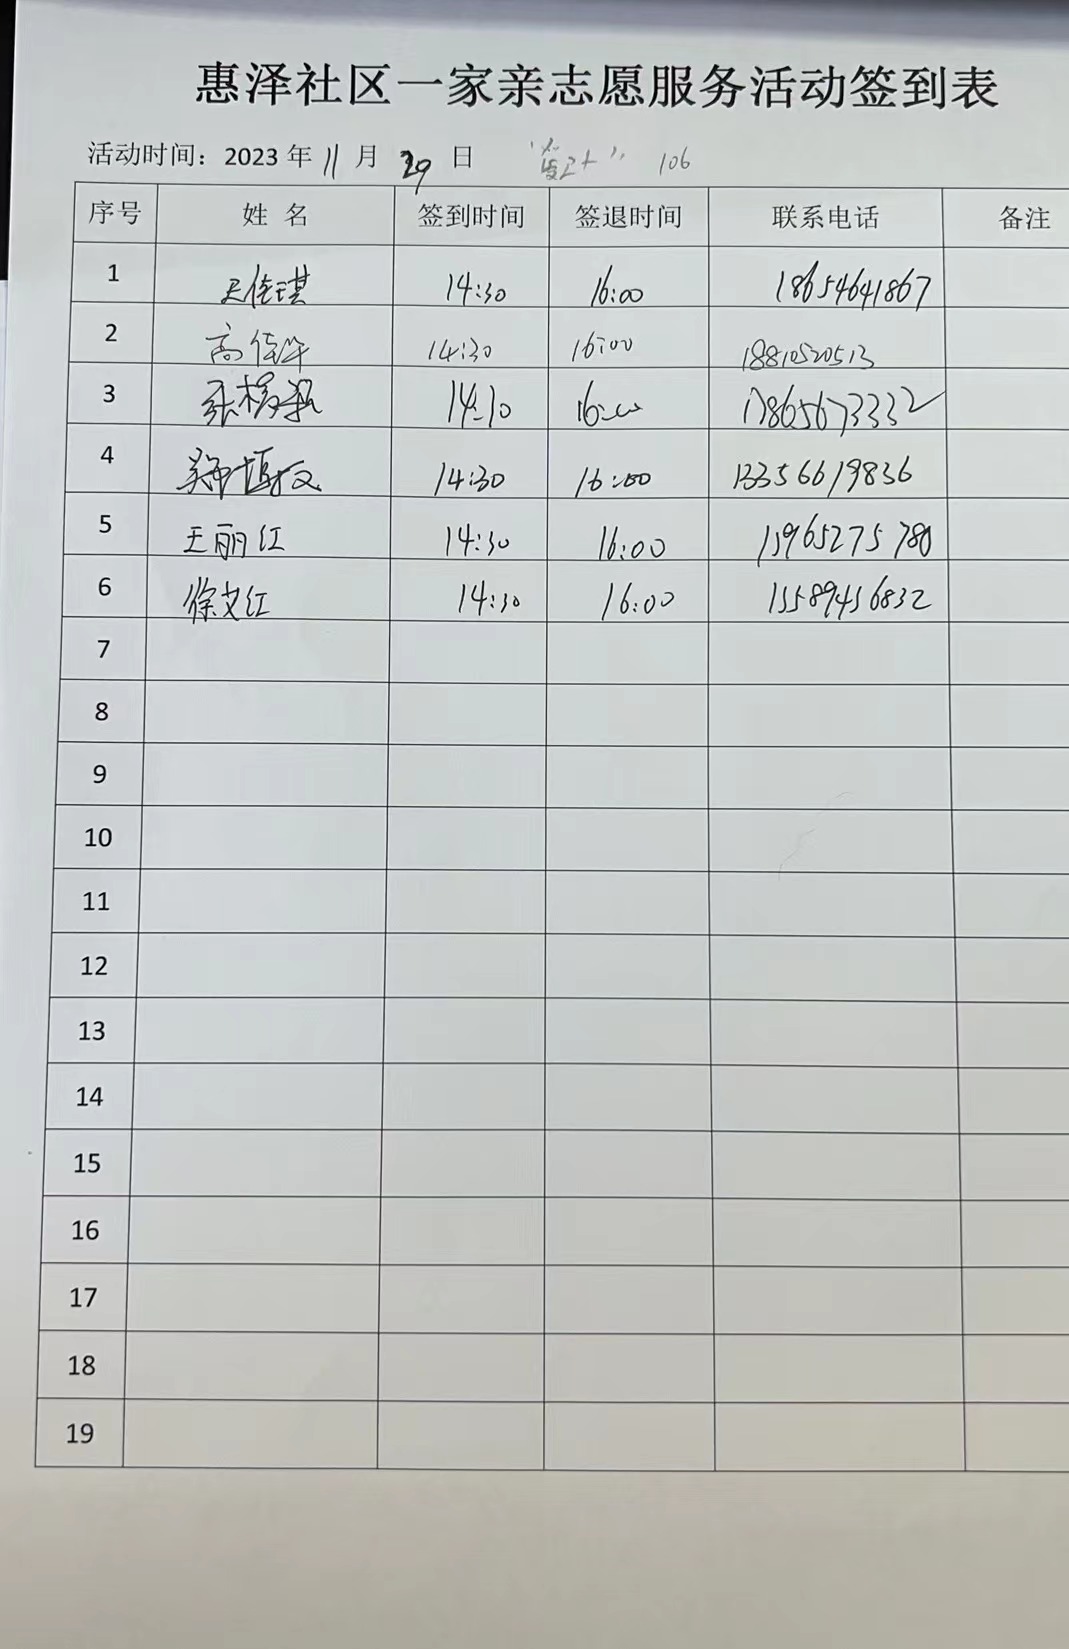 惠泽社区一家亲志愿服务活动签到表
活动时间：2023 年 11 月 29 日 106
序号 姓 名 签到时间 签退时间 联系电话 备注
1 佳琪 14:30 16:00 18654641867
2 高佳 14:30 16:00 18810520513
3 张 14:30 16:00 17865673332
4 14:30 16:00 13356619836
5 王丽红 14:30 16:00 15965275780
6 徐文红 14:30 16:00 15589456832
7
8
9
10
11
12
13
14
15
16
17
18
19